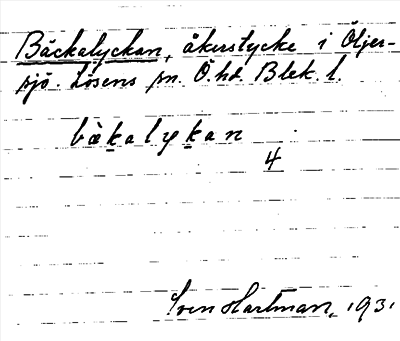 Bäckalyckan, åkerstycke i Öljer-
sjö. Lösens sn. Ö. hd. Blek. l.
bäkalykan
4
Sven Hartman, 1931